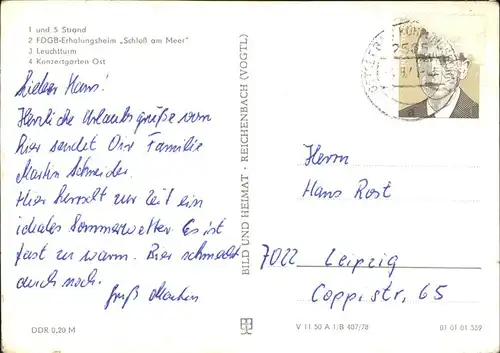 1 und 5 Strand
2 FDGB-Erholungsheim „Schloß am Meer"
3 Leuchtturm
4 Konzertgarten Ost
Lieber Hans!
Herzliche Urlaubsgrüße von
hier sendet Dir Familie
Martin Schneider.
Hier herrscht zur Zeit ein
ideales Sommerwetter. Es ist
fast zu warm. Bier schmeckt
auch noch.
Gruß Martin
DDR 0,20 M
BILD UND HEIMAT · REICHENBACH (VOGTL)
V 11 50 A 1/B 407/78
01 01 01 339
Herrn
Hans Rost
7022 Leipzig
Coppistr. 65